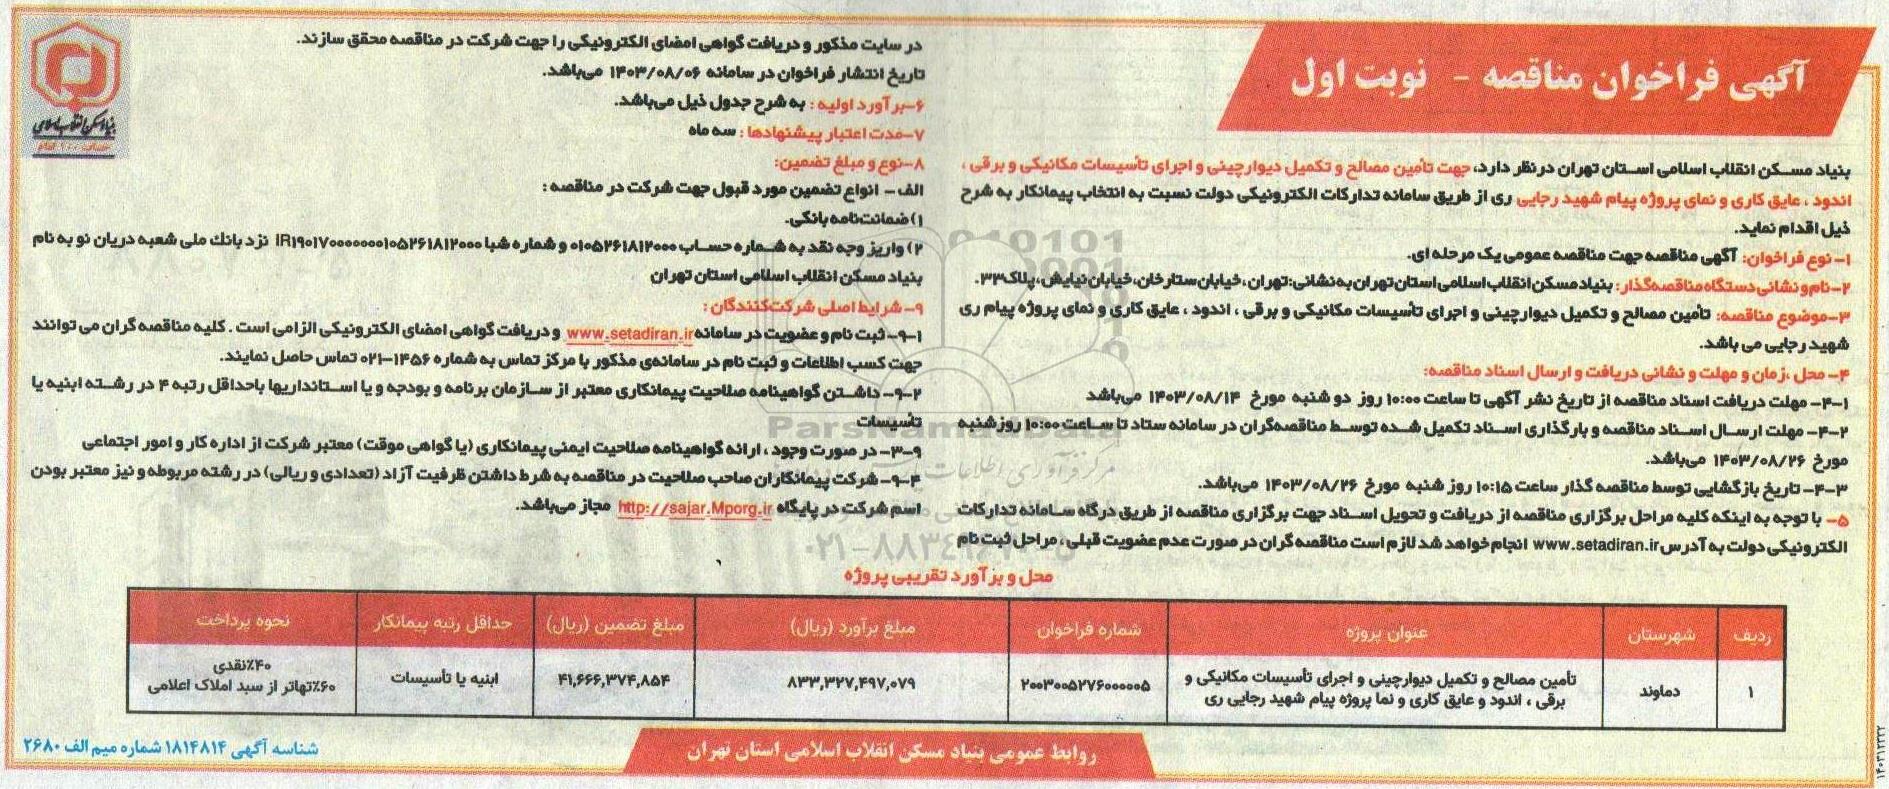 آگهی فراخوان مناقصه - نوبت اول
بنیاد مسکن انقلاب اسلامی
حساب ۱۰۰ امام
بنیاد مسکن انقلاب اسلامی استان تهران در نظر دارد، جهت تأمین مصالح و تکمیل دیوارچینی و اجرای تأسیسات مکانیکی و برقی ،
اندود ، عایق کاری و نمای پروژه پیام شهید رجایی ری از طریق سامانه تدارکات الکترونیکی دولت نسبت به انتخاب پیمانکار به شرح
ذیل اقدام نماید.
۱- نوع فراخوان: آگهی مناقصه جهت مناقصه عمومی یک مرحله ای.
۲-نام و نشانی دستگاه مناقصه‌گذار: بنیاد مسکن انقلاب اسلامی استان تهران به نشانی: تهران ، خیابان ستارخان، خیابان نیایش، پلاک۳۳.
۳-موضوع مناقصه: تأمین مصالح و تکمیل دیوارچینی و اجرای تأسیسات مکانیکی و برقی ، اندود ، عایق کاری و نمای پروژه پیام ری
شهید رجایی می باشد.
۴- محل ،زمان و مهلت و نشانی دریافت و ارسال اسناد مناقصه:
۴-۱- مهلت دریافت اسناد مناقصه از تاریخ نشر آگهی تا ساعت ۱۰:۰۰ روز دو شنبه مورخ ۱۴۰۳/۰۸/۱۴ می‌باشد
۴-۲- مهلت ارسال اسناد مناقصه و بارگذاری اسناد تکمیل شده توسط مناقصه‌گران در سامانه ستاد تا ساعت ۱۰:۰۰ روز شنبه
مورخ ۱۴۰۳/۰۸/۲۶ می‌باشد.
۴-۳- تاریخ بازگشایی توسط مناقصه گذار ساعت ۱۰:۱۵ روز شنبه مورخ ۱۴۰۳/۰۸/۲۶ می‌باشد.
۵- با توجه به اینکه کلیه مراحل برگزاری مناقصه از دریافت و تحویل اسناد جهت برگزاری مناقصه از طریق درگاه سامانه تدارکات
الکترونیکی دولت به آدرس www.setadiran.ir انجام خواهد شد لازم است مناقصه گران در صورت عدم عضویت قبلی ، مراحل ثبت نام
در سایت مذکور و دریافت گواهی امضای الکترونیکی را جهت شرکت در مناقصه محقق سازند.
تاریخ انتشار فراخوان در سامانه ۱۴۰۳/۰۸/۰۶ می‌باشد.
۶-برآورد اولیه : به شرح جدول ذیل می‌باشد.
۷-مدت اعتبار پیشنهادها : سه ماه
۸-نوع و مبلغ تضمین:
الف- انواع تضمین مورد قبول جهت شرکت در مناقصه :
۱) ضمانت‌نامه بانکی.
۲) واریز وجه نقد به شماره حساب ۰۱۰۵۲۶۱۸۱۲۰۰۰ و شماره شبا IR۱۹۰۱۷۰۰۰۰۰۰۰۰۱۰۵۲۶۱۸۱۲۰۰۰ نزد بانک ملی شعبه دریان نو به نام
بنیاد مسکن انقلاب اسلامی استان تهران
۹- شرایط اصلی شرکت‌کنندگان :
۹-۱- ثبت نام و عضویت در سامانه www.setadiran.ir و دریافت گواهی امضای الکترونیکی الزامی است . کلیه مناقصه گران می توانند
جهت کسب اطلاعات و ثبت نام در سامانه‌ی مذکور با مرکز تماس به شماره ۱۴۵۶-۰۲۱ تماس حاصل نمایند.
۹-۲- داشتن گواهینامه صلاحیت پیمانکاری معتبر از سازمان برنامه و بودجه و یا استانداریها باحداقل رتبه ۴ در رشته ابنیه یا
تأسیسات
۹-۳- در صورت وجود ، ارائه گواهینامه صلاحیت ایمنی پیمانکاری (یا گواهی موقت) معتبر شرکت از اداره کار و امور اجتماعی
۹-۴- شرکت پیمانکاران صاحب صلاحیت در مناقصه به شرط داشتن ظرفیت آزاد (تعدادی و ریالی) در رشته مربوطه و نیز معتبر بودن
اسم شرکت در پایگاه http://sajar.Mporg.ir مجاز می‌باشد.
ParsNamadData
۰۲۱-۸۸۳۴۹۶۷۰-۵
محل و برآورد تقریبی پروژه
ردیف شهرستان عنوان پروژه شماره فراخوان مبلغ برآورد (ریال) مبلغ تضمین (ریال) حداقل رتبه پیمانکار نحوه پرداخت
۱ دماوند تأمین مصالح و تکمیل دیوارچینی و اجرای تأسیسات مکانیکی و
برقی ، اندود و عایق کاری و نما پروژه پیام شهید رجایی ری
۲۰۰۳۰۰۵۲۷۶۰۰۰۰۰۵ ۸۳۳,۳۲۷,۴۹۷,۰۷۹ ۴۱,۶۶۶,۳۷۴,۸۵۴ ابنیه یا تأسیسات
۴۰٪نقدی
۶۰٪تهاتر از سبد املاک اعلامی
روابط عمومی بنیاد مسکن انقلاب اسلامی استان تهران
شناسه آگهی ۱۸۱۴۸۱۴ شماره میم الف ۲۶۸۰
۱۴۰۳۱۲۳۲۲